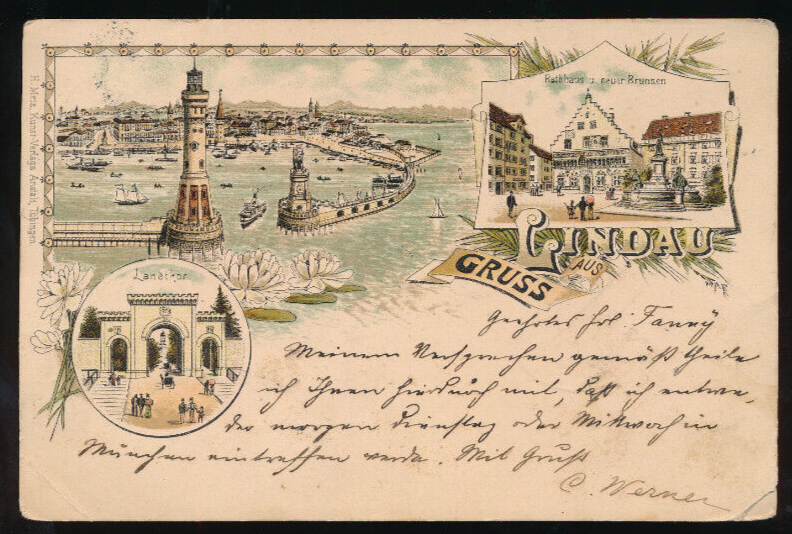 H. Metz, Kunst-Verlags Anstalt, Tübingen.
Rathhaus u. neuer Brunnen
LINDAU
AUS
GRUSS
Landthor
Geehrtes Frl. Fanny
Meinem Versprechen gemäß theile
ich Ihnen hierdurch mit, daß ich entwe,
der morgen Dienstag oder Mittwoch in
München eintreffen werde. Mit Gruß
C. Werner